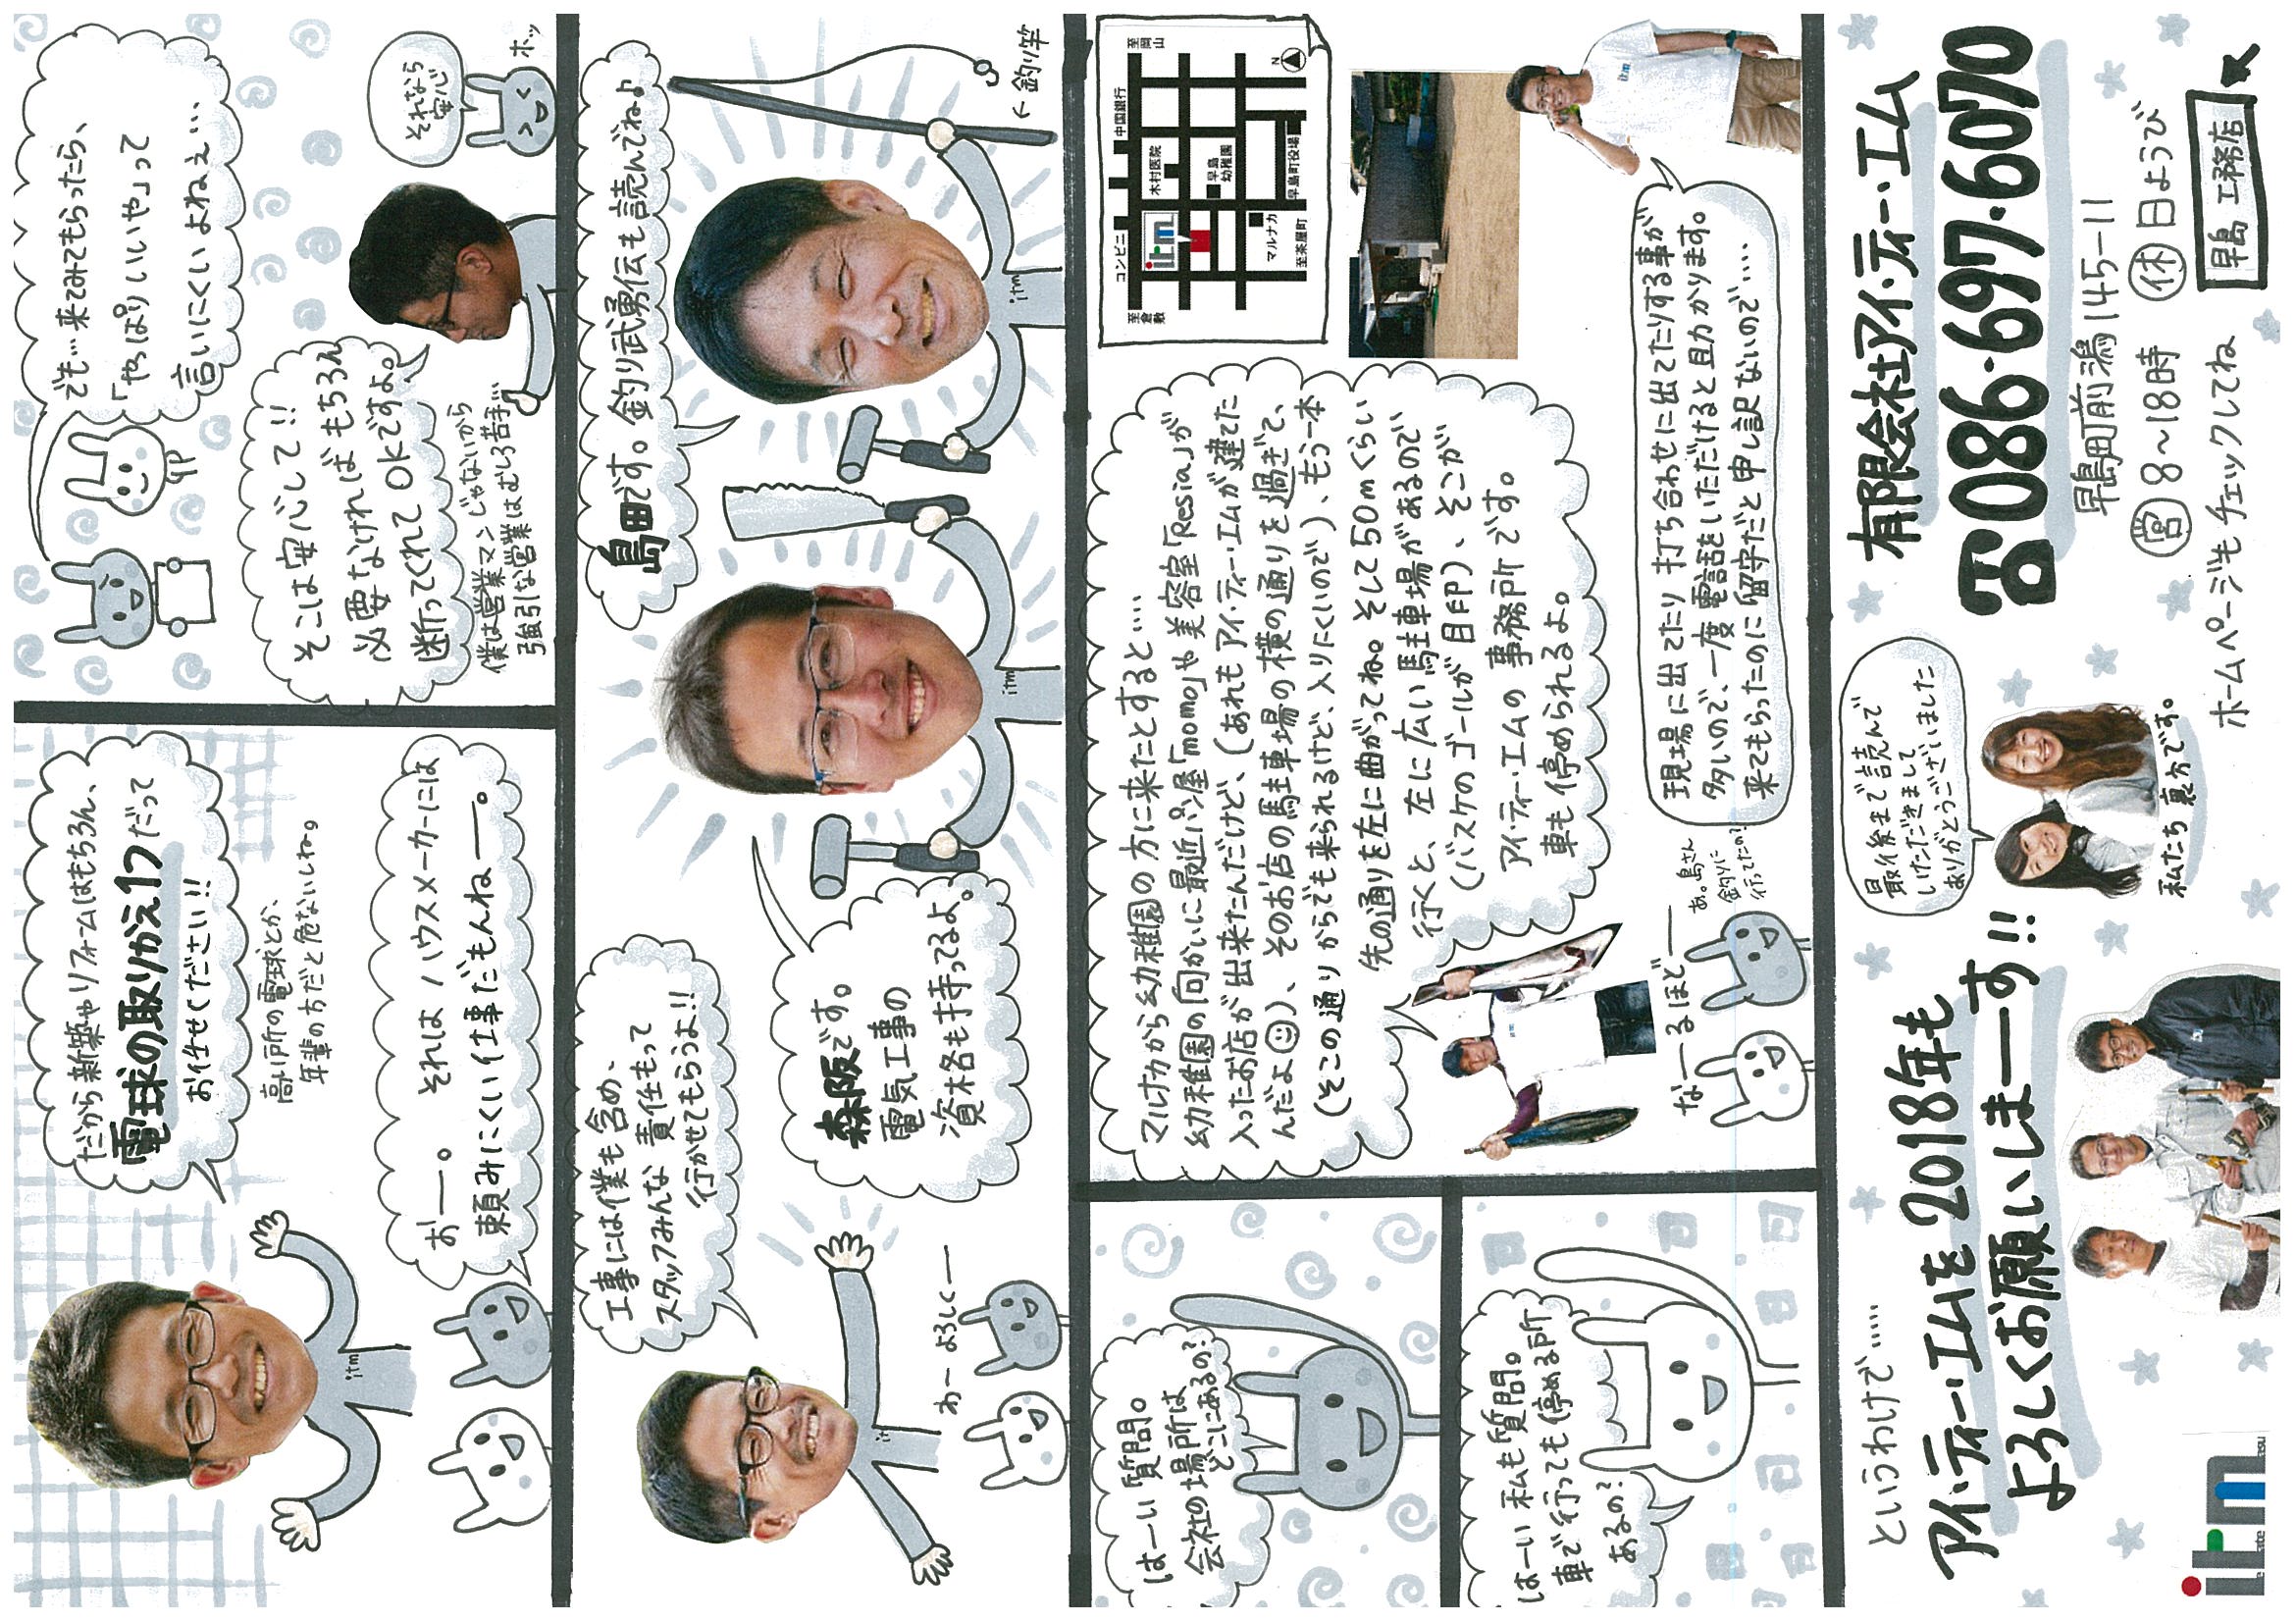 だから新築やリフォームはもちろん、
電球の取りかえ1つだって
お任せください!!
高い所の電球とか、
年輩の方だと危ないしね。
おー。それはハウスメーカーには
頼みにくい仕事だもんねー。
でも…来てみてもらったら、
「やっぱりいいや」って
言いにくいよねぇ…
そこは安心して!!
必要なければもちろん
断ってくれてOKですよ。
僕は営業マンじゃないから
強引な営業はむしろ苦手
それなら
安心
ホッ
工事には僕も含め、
スタッフみんな責任もって
行かせてもらうよ!!
わーよろしくー
itm
森阪です。
電気工事の
資格も持ってるよ。
itm
島田です。釣り武勇伝も読んでね♪
←釣り竿
itm
はーい質問。
会社の場所は
どこにあるの?
はーい私も質問。
車で行っても停める所
あるの?
マルナカから幼稚園の方に来たとすると…
幼稚園の向かいに最近パン屋「momo」や美容室「Resia」が
入ったお店が出来たんだけど、(あれもアイ・ティー・エムが建てた
んだよ)、そのお店の駐車場の横の通りを過ぎて、
(そこの通りからでも来られるけど、入りにくいので)、もう一本
先の通りを左に曲がってね。そして50mくらい
行くと、左に広い駐車場があるので
(バスケのゴールが目印)、そこが
アイ・ティー・エムの事務所です。
車も停められるよ。
なーるほどー
あ。島さん
釣りに
行ってたの?
現場に出てたり打ち合わせに出てたりする事が
多いので、一度電話をいただけると助かります。
来てもらったのに留守だと申し訳ないので…
至倉敷
コンビニ
中国銀行
至岡山
itm
木村医院
早島
幼稚園
マルナカ
至茶屋町
早島町役場
N
というわけで……
アイ・ティー・エムを2018年も
よろしくお願いしまーす!!
itm
最後まで読んで
いただきまして
ありがとうございました
私たち裏方です。
有限会社アイ・ティー・エム
☎086・697・6070
早島町前潟145-11
営8~18時 休日ようび
ホームページもチェックしてね
早島 工務店